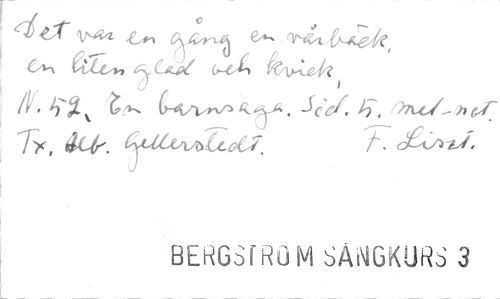 Det var en gång en vårbäck,
en liten glad och kvick,
N. 52, En barnsaga. Sid. 5. mel-not.
Tx. Alb. Gellerstedt. F. Liszt.
BERGSTRÖM SÅNGKURS 3